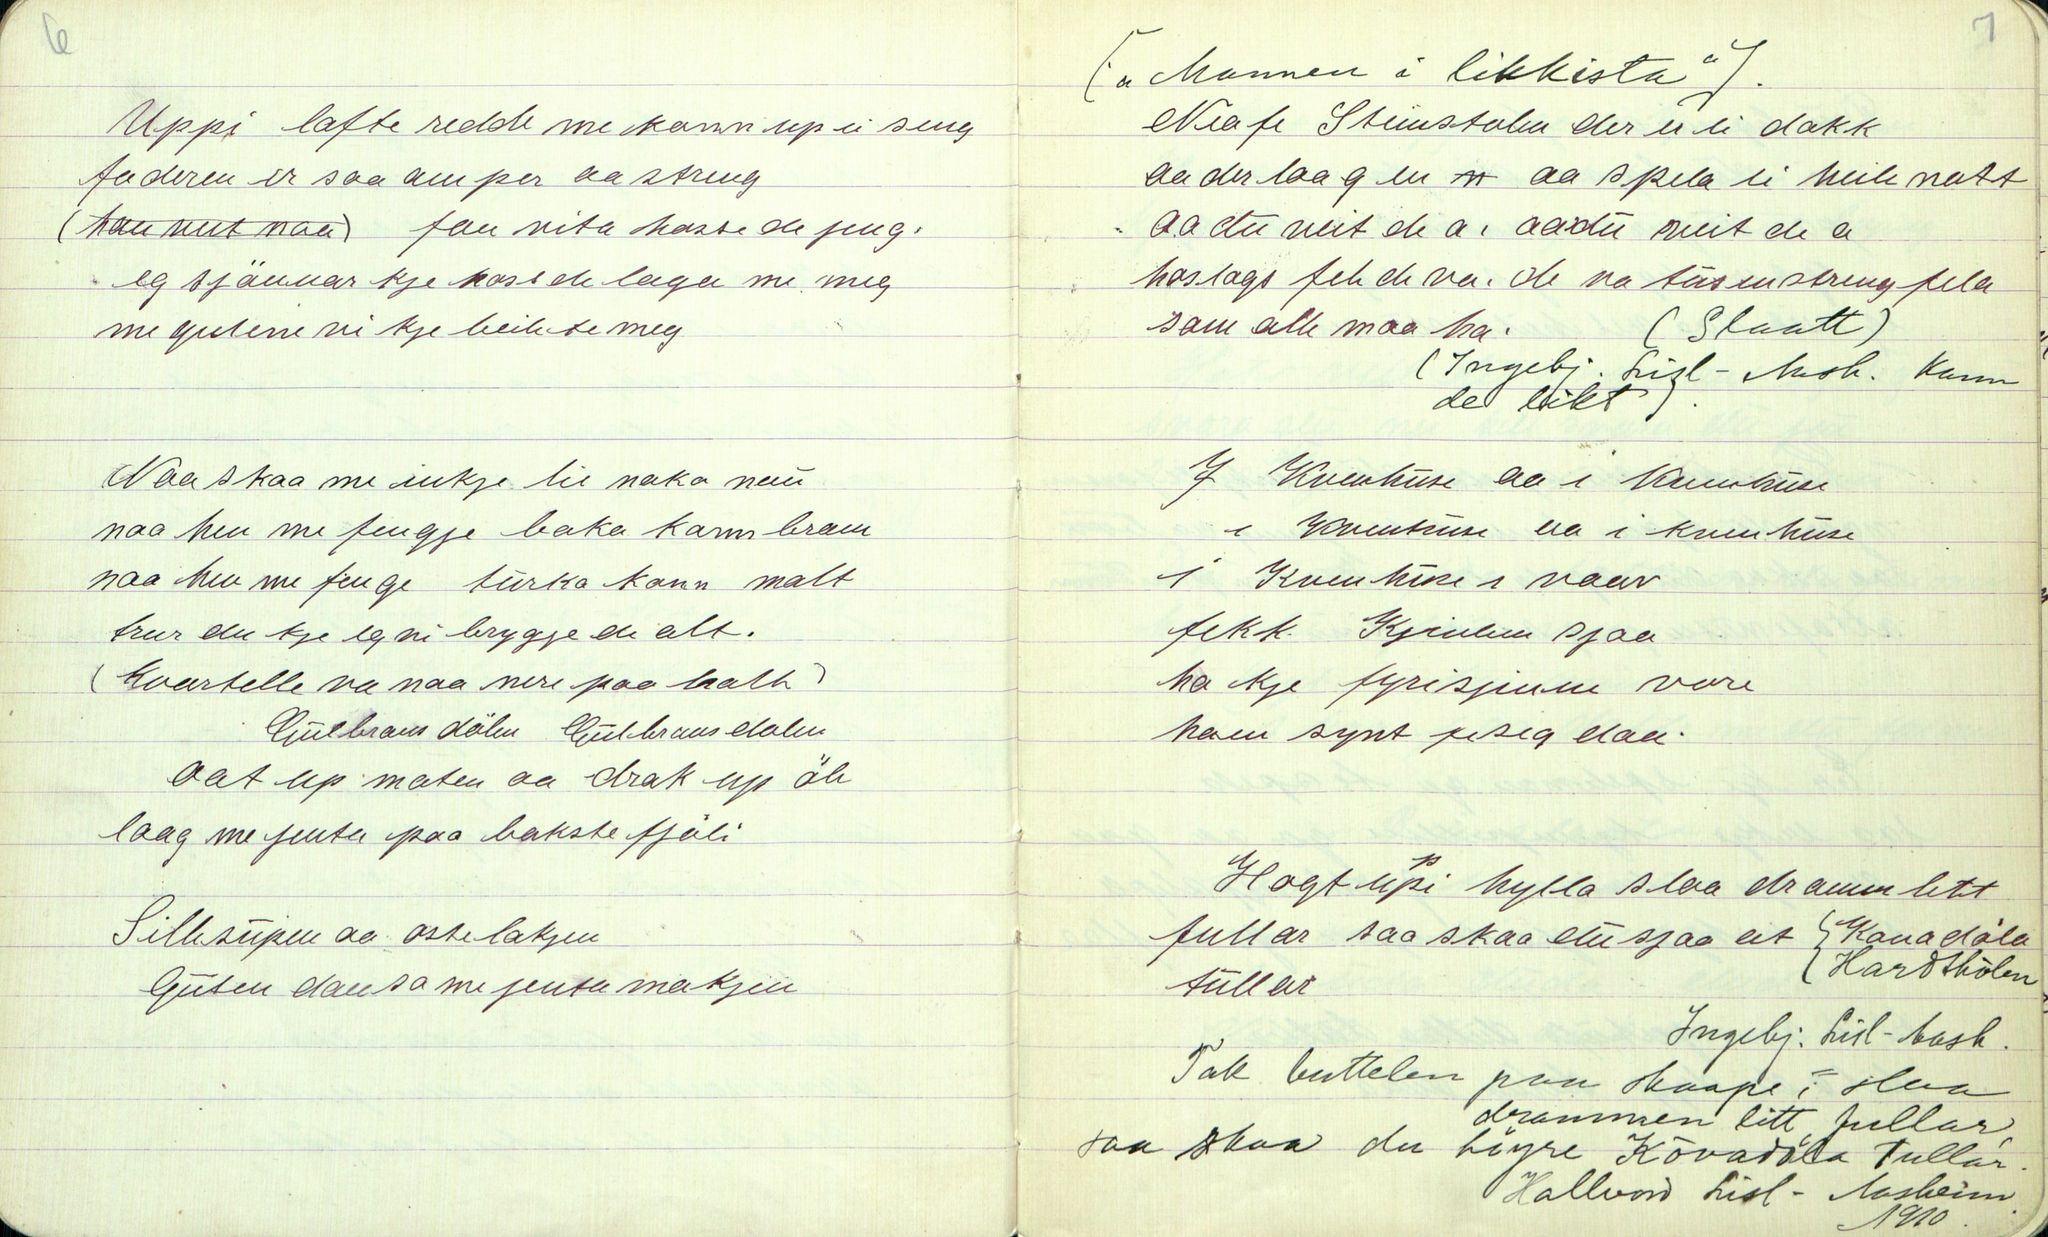 6
Uppi lafte redde me kann up ei seng
faderen er saa amper aa streng
(han veit naa) fan vita hasse de jeng.
eg sjönnar kje hosse de laga me meg
me gutene vi kje beile te meg
Naa skaa me inkje lie naka naü
naa hev me fengje baka kann braue
naa hev me fenge türka kann malt
trur du kje eg vi brygge de alt.
(Kvartelle va naa nere paa hall)
Gülbrans dölen Gülbrans dolen
aat up maten aa drak up öle
laag me jenta paa bakste fjöli
Sillesüpen aa ostelakjen
Güten dansa me jenta makjen
7
("Mannen i likkista").
Neafe Steinstolen der er ei dokk
aa der laag en aa spela ei heile natt
aa dü veit de a, aa dü veit de a
hoslags fele de va. de va tüsenstreng fela
som alle maa ha. (Slaatt)
(Ingebj. Lisl-Aash. Kann
de likt).
I Kvenhüse aa i Kvenhüse
i Kvenhüse aa i kvenhüse
i Kvenhüse i vaar
fekk Kjeilen sjaa
ha kje fyrisjinne vore
haen synt seg daa.
Hogt üppi hylla slaa drammen litt
fullar saa skaa dü sjaa at {Kavadöla
{Hardthölen
tüllar
Ingebj. Lisl-Aash.
Tak buttelen paa skaape i slaa
drammen litt fullar
saa skaa du höyre Kövadöla tullar.
Hallvord Lisl-Aasheim.
1910.